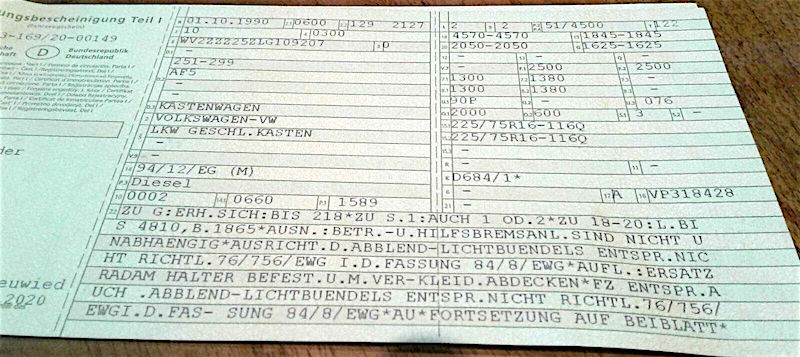 ngsbescheinigung Teil I
(Fahrzeugschein)
-169/20-00149
D
Bundesrepublik
Deutschland
B 01.10.1990 2.1 0600 2.2 129 2127
J 10 4 0300
E WV2ZZZ25ZLG109207 3 0
-
251-299
AF5
D.3 KASTENWAGEN
2 VOLKSWAGEN-VW
LKW GESCHL.KASTEN
-
V.9 -
14 94/12/EG (M)
P.3 Diesel
10 0002 14.1 0660 P.1 1589
L 2 9 2 P.2 51/4500 T 122
18 4570-4570 19 1845-1845
20 2050-2050 G 1625-1625
- -
- 2500 2500
1300 1380 -
1300 1380 -
90P - 076
2000 600 3 -
225/75R16-116Q
225/75R16-116Q
-
- -
K D684/1*
6 - 17 A 16 VP318428
21 -
22 ZU G:ERH.SICH:BIS 218*ZU S.1:AUCH 1 OD.2*ZU 18-20:L.BI
S 4810,B.1865*AUSN.:BETR.-U.HILFSBREMSANL.SIND NICHT U
NABHAENGIG*AUSRICHT.D.ABBLEND-LICHTBUENDELS ENTSPR.NIC
HT RICHTL.76/756/EWG I.D.FASSUNG 84/8/EWG*AUFL.:ERSATZ
RADAM HALTER BEFEST.U.M.VER-KLEID.ABDECKEN*FZ ENTSPR.A
UCH .ABBLEND-LICHTBUENDELS ENTSPR.NICHT RICHTL.76/756/
EWGI.D.FAS- SUNG 84/8/EWG*AU*FORTSETZUNG AUF BEIBLATT*
der
euwied
2020